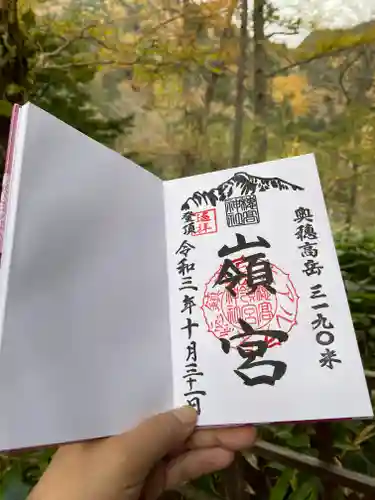 奥穂高岳 三一九〇米
嶺宮
登頂
遥拝
令和三年十月三十一日